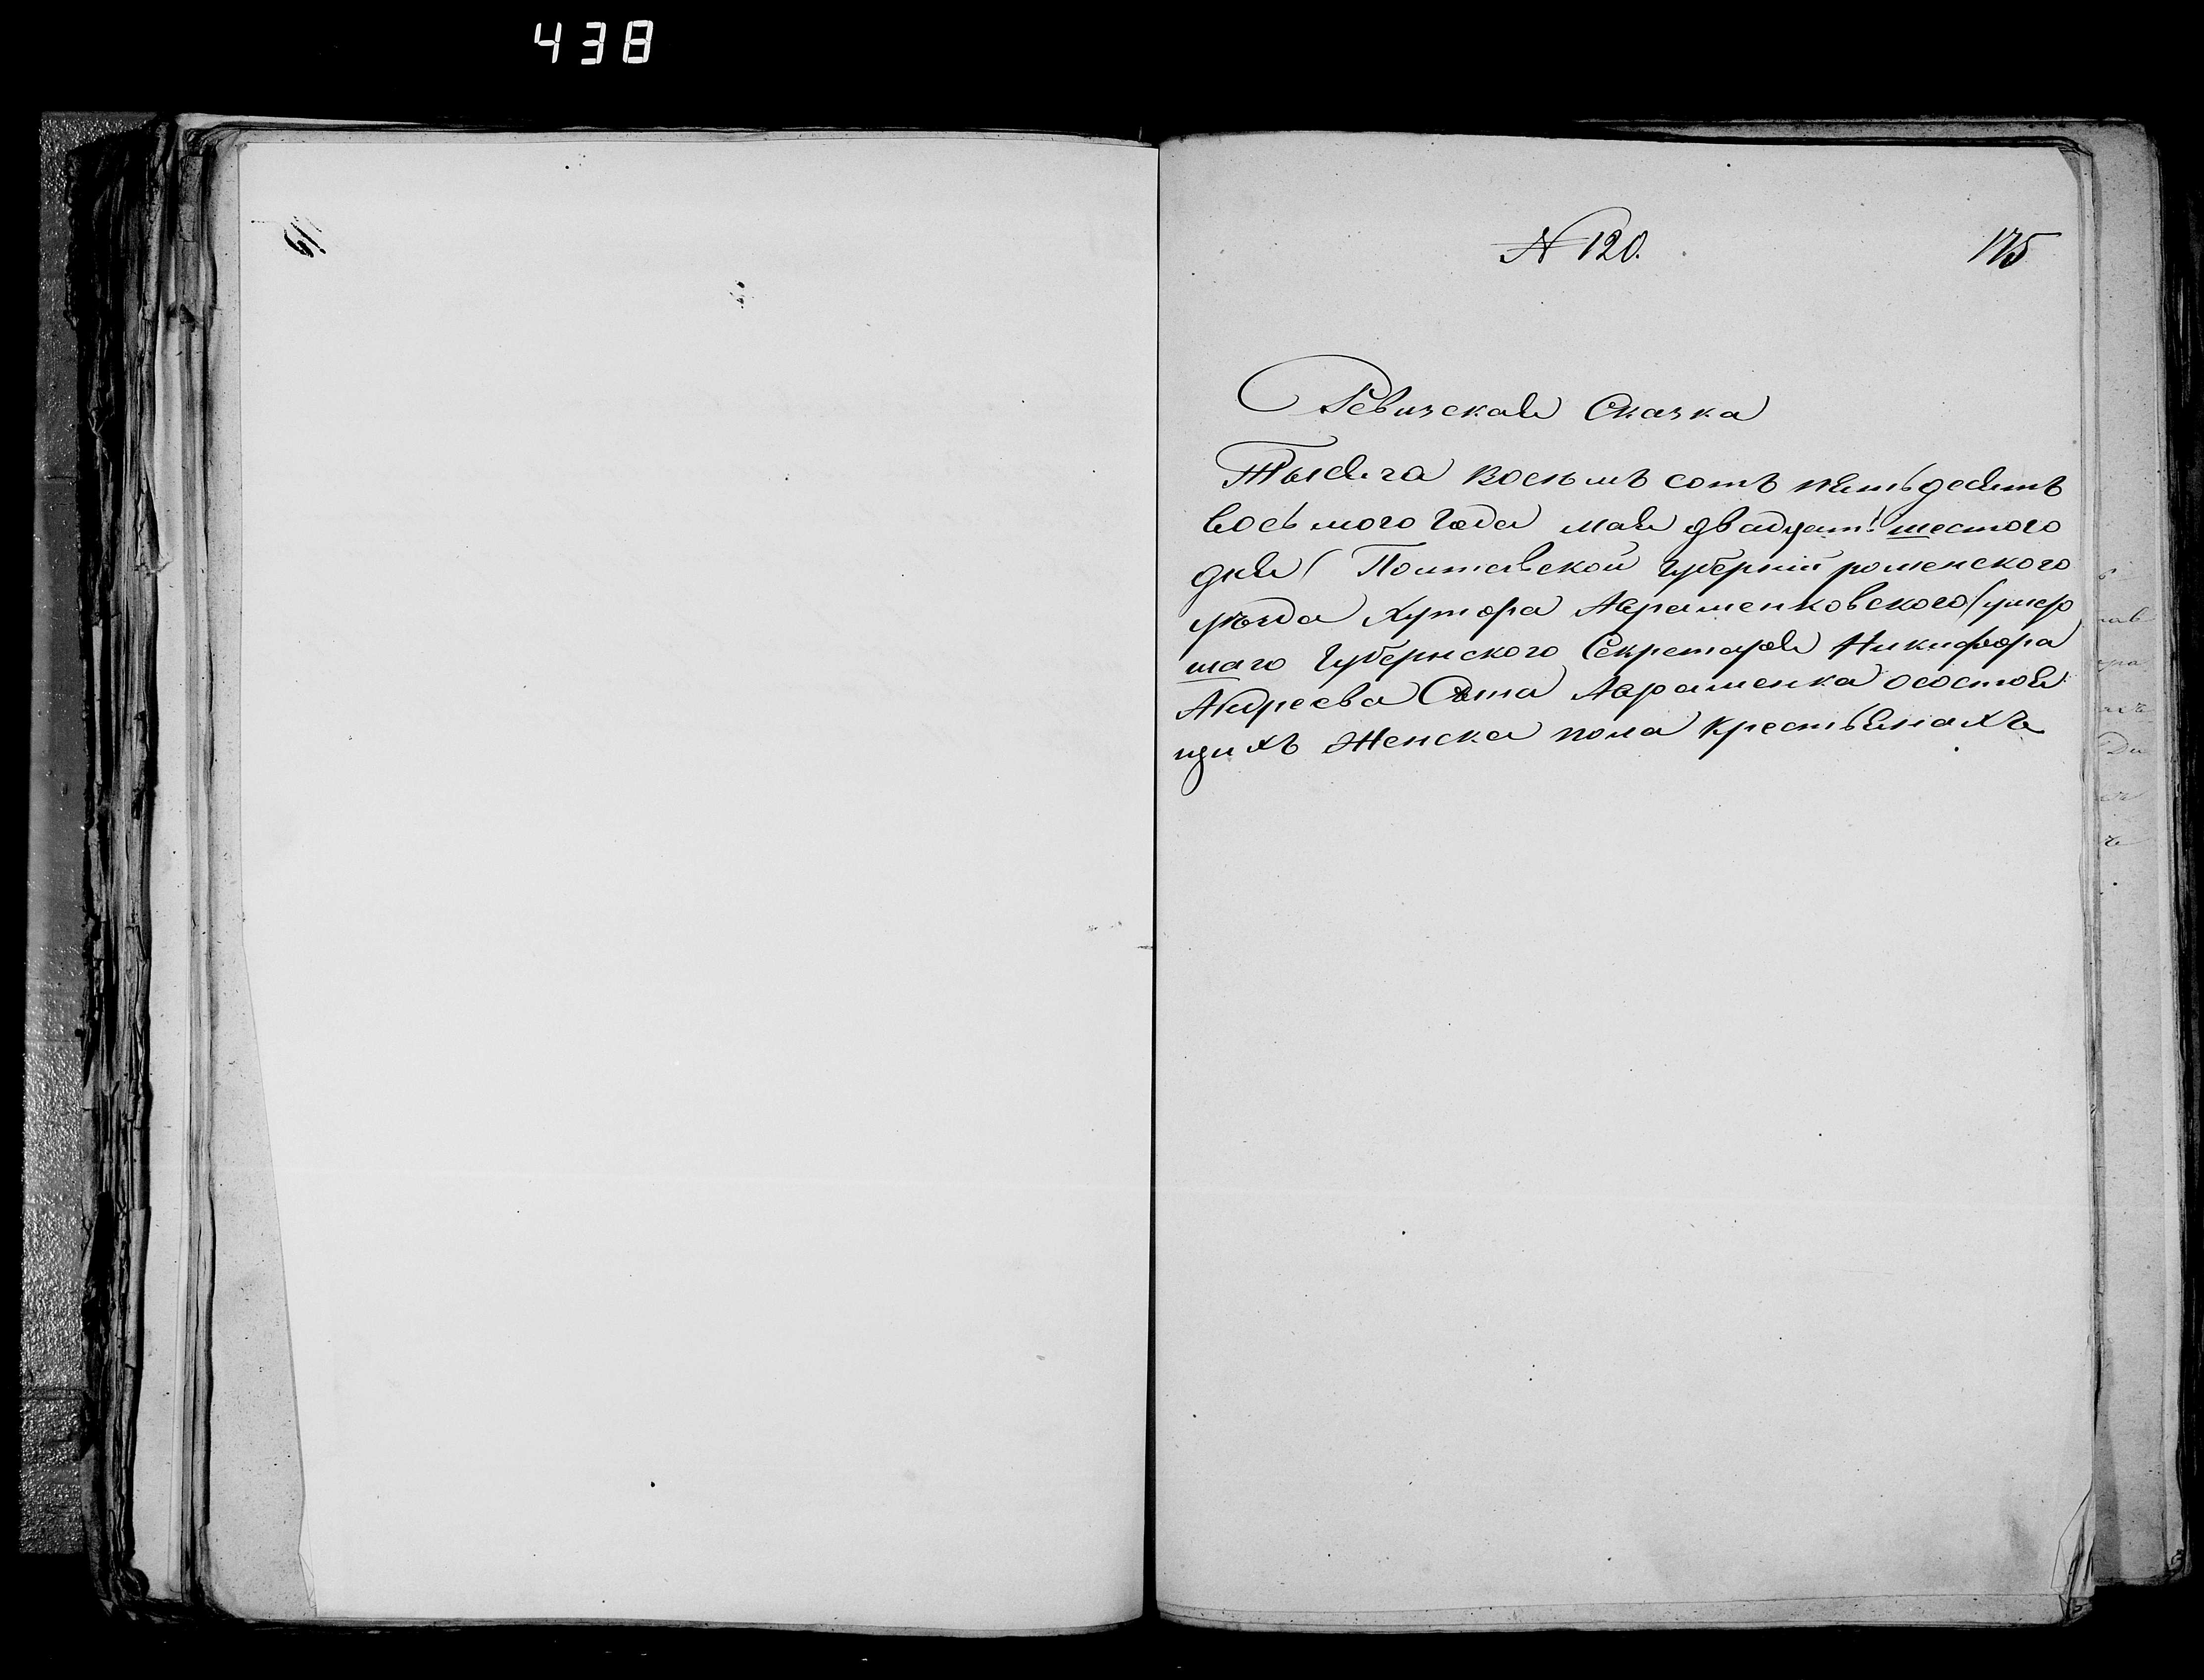 438
N 120.
175
Ревизская Сказка
Тысяча восемь сотъ пятьдесятъ
восьмого Года мая двадцать шестого
дня Полтавской Губерніи роменского
уѣзда Хутора Авраменковского умер
шаго Губернского Секретаря Никифора
Андреева Сына Авраменка осостоя
щихъ Женска пола крестьянахъ